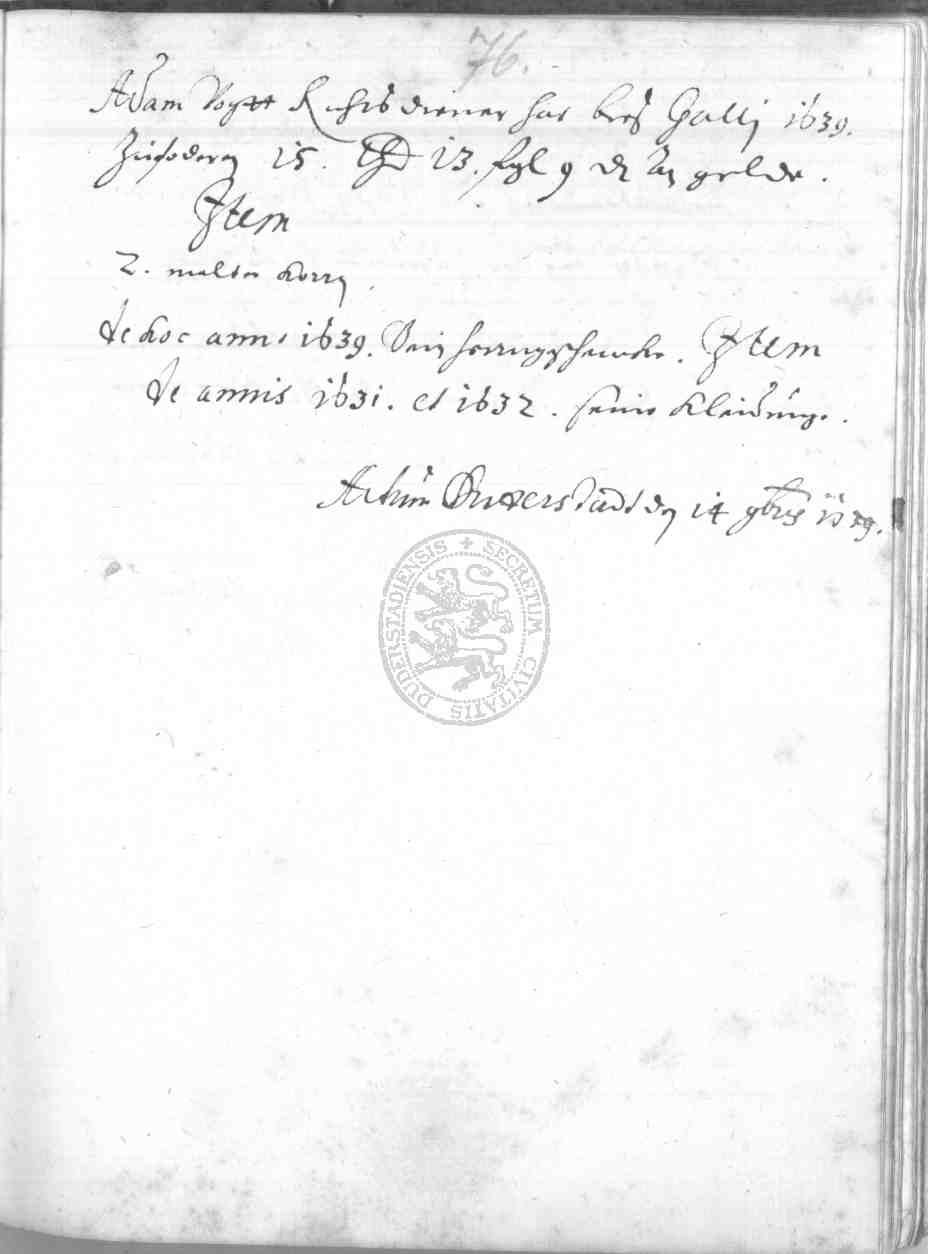 76.
Adam Vogtt Rahtsdiener hat bies Gallj 1639.
Zufodern 15. thlr 13. ßgl 9 d An gelde.
Item
2. malter Korn
de hoc anno 1639. Item
de annis 1631. et 1632. seine Kleidunge.
Actum Duderstadt den 14 9bris 1639.
SECRETUM CIVITATIS DUDERSTADIENSIS